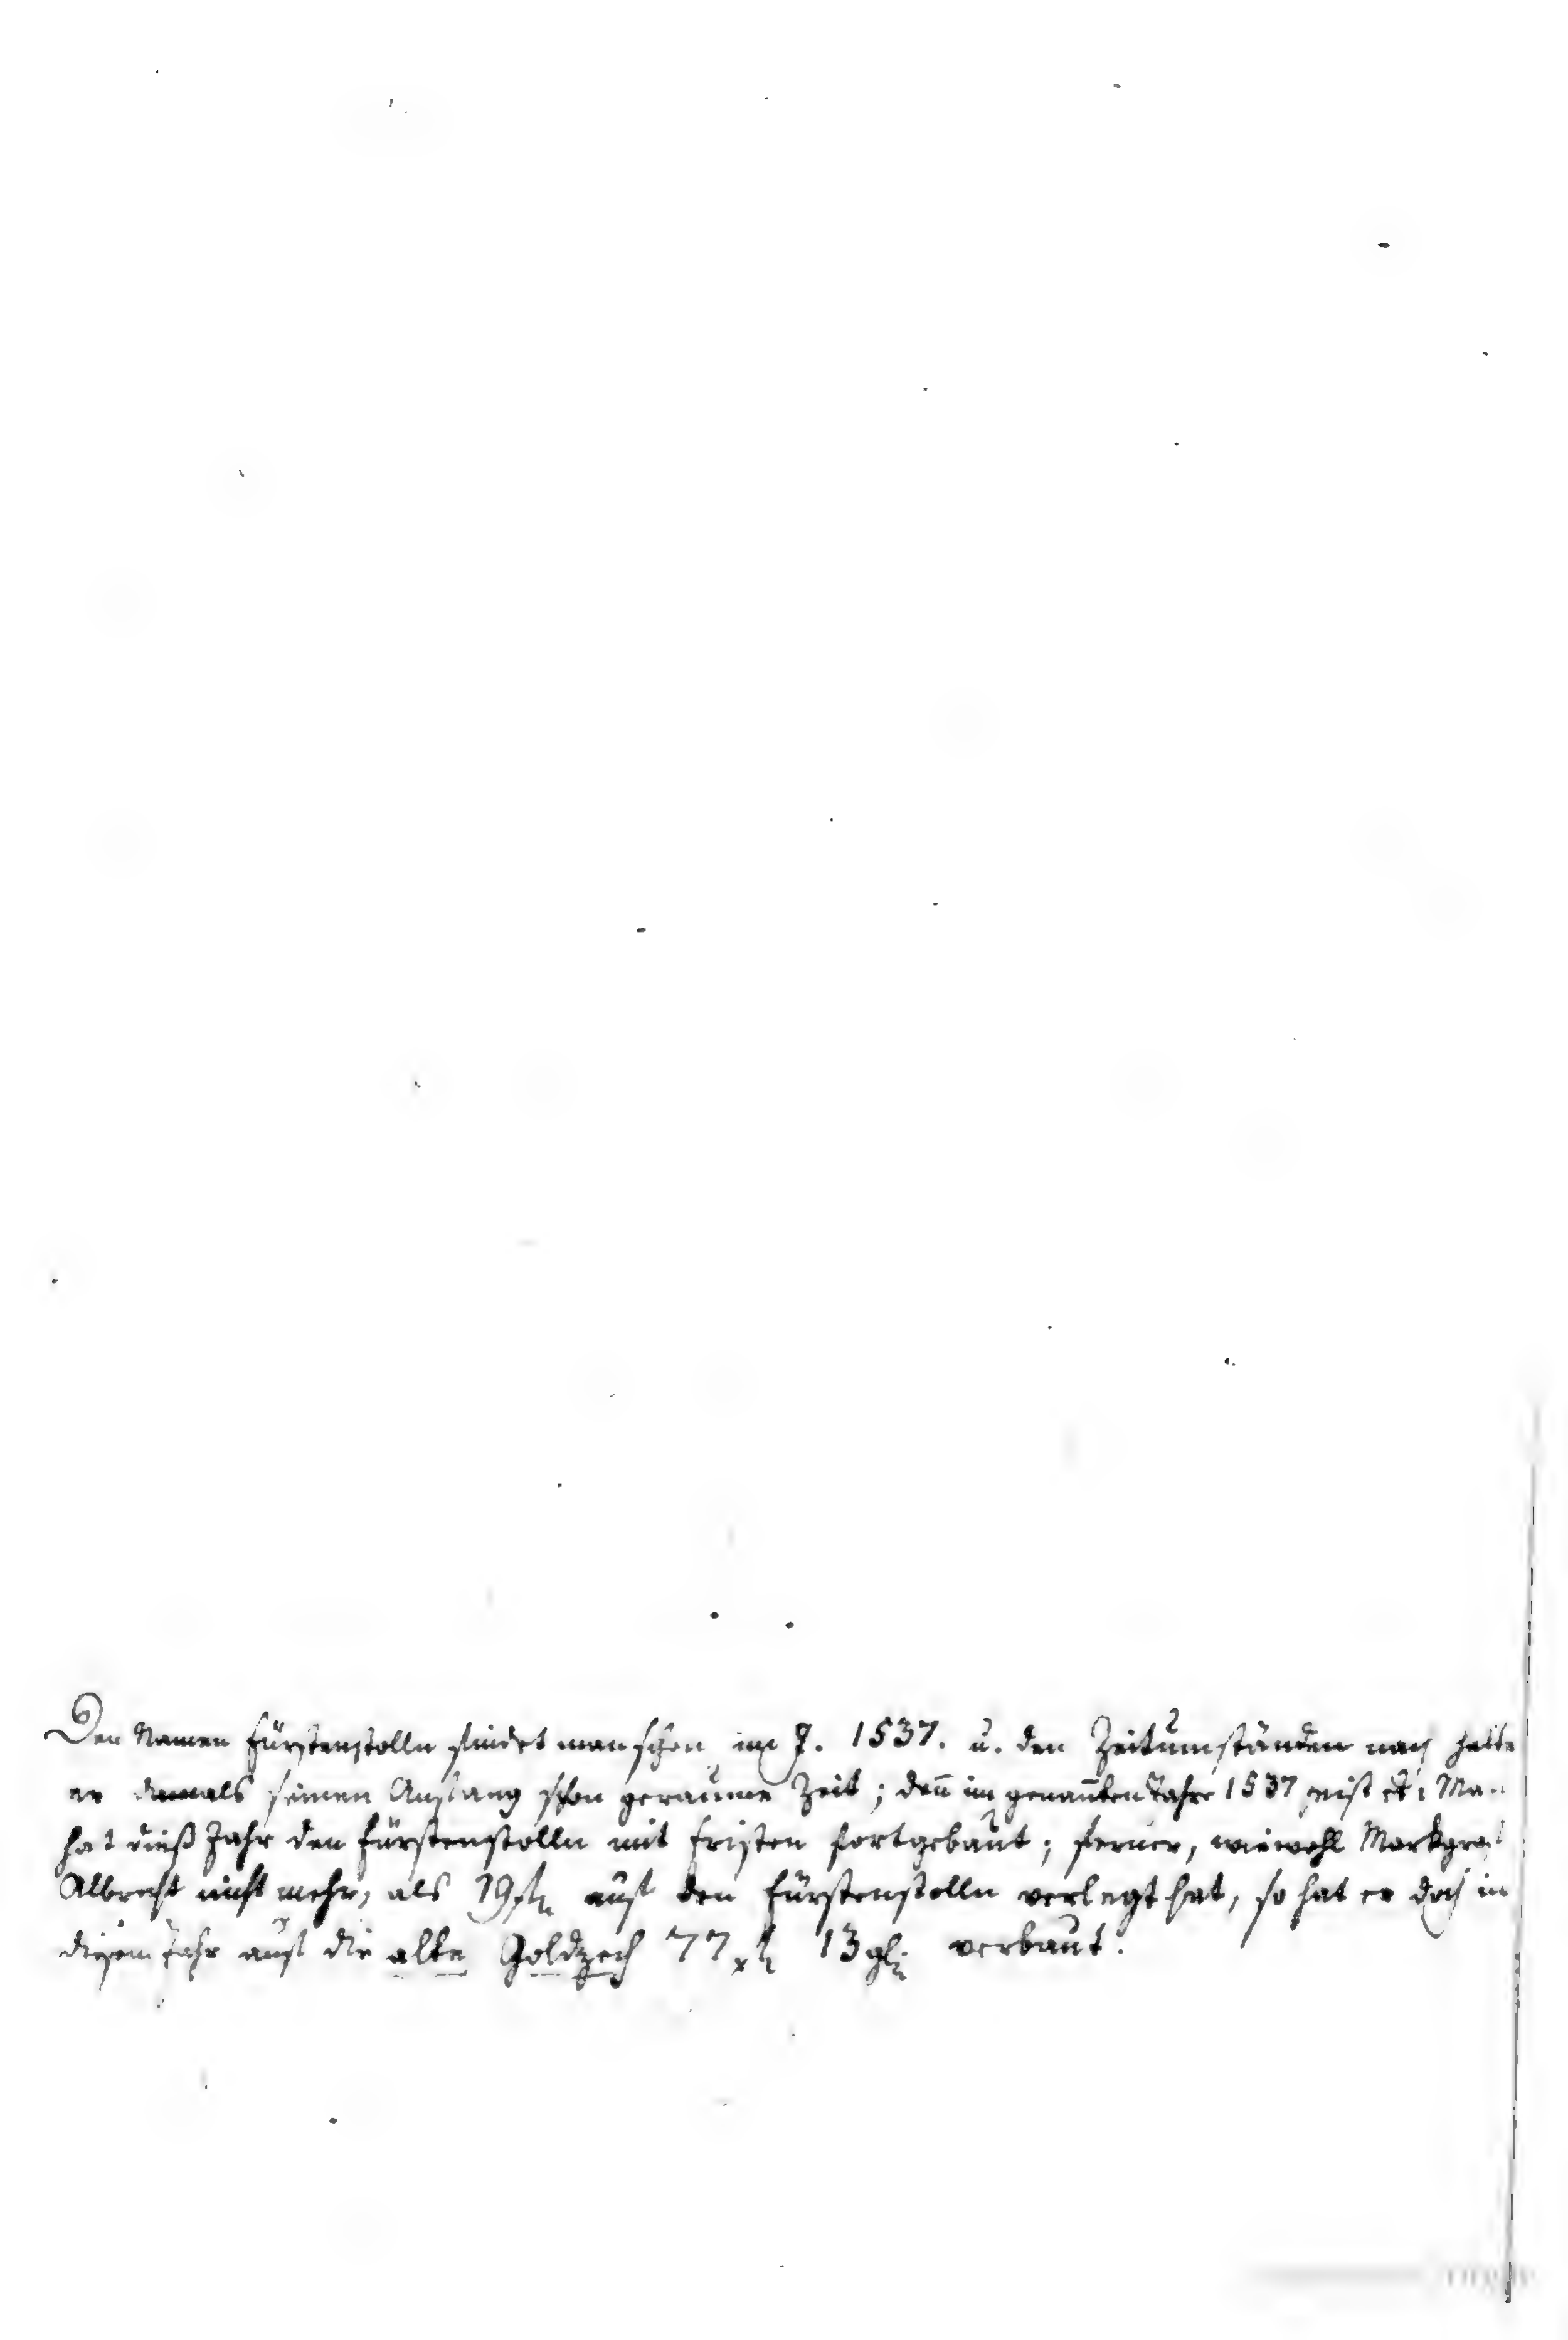 Den Namen Fürstenstolln findet man schon im J. 1537. u. den Zeitumständen nach hatte
er damals seinen Anfang schon geraume Zeit; deñ im genañten Jahre 1537 heist es: Man
hat dieß Jahr den Fürstenstolln mit Fristen fortgebaut; ferner, wiewohl Markgraf
Albrecht nicht mehr, als 19 fl. auf den Fürstenstolln verlegt hat, so hat er doch in
diesem Jahr auf die alte Goldzech 77 13 verbaut.